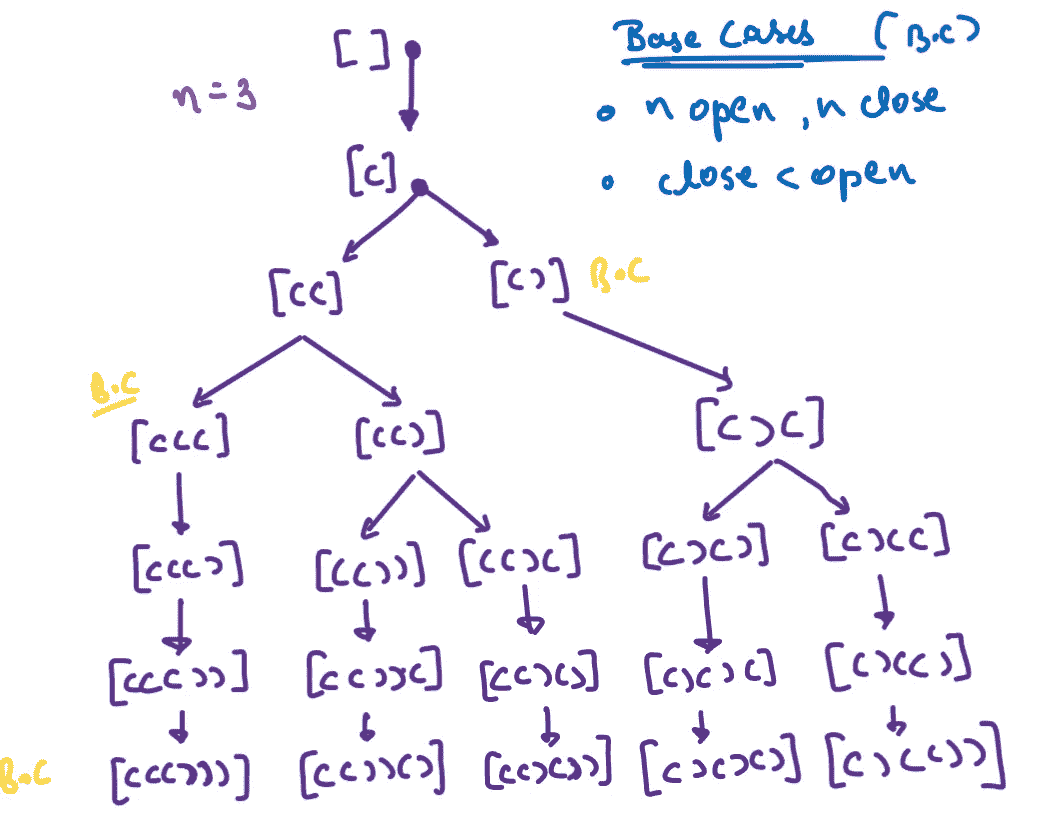 [ ]
Base Cases (B.C)
n = 3
• n open, n close
[(]
• close < open
[((] [()] B.C
B.C
[(((] [(()] [()(]
[((()] [(())] [(()(] [()()] [()((]
[((())] [(())(] [(()()] [()()(] [()(()]
B.C [((()))] [(())()] [(()())] [()()()] [()(())]